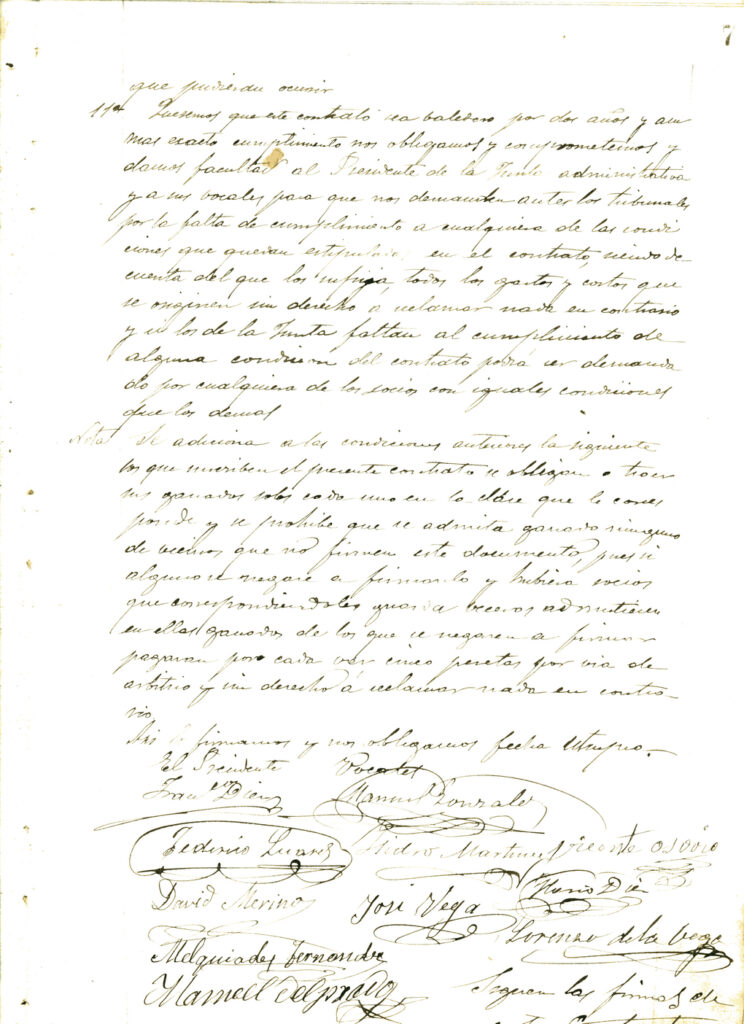 7
que pudieran ocurrir
11ª Queremos que este contrato sea valedero por dos años y a su
mas exacto cumplimento nos obligamos y comprometemos y
damos facultad al Presidente de la Junta administrativa
y a sus vocales para que nos demanden antes los tribunales
por la falta de cumplimiento a cualquiera de las condi
ciones que quedan estipuladas en el contrato, siendo de
cuenta del que los infrija, todos los gastos y costos que
se originen sin derecho a reclamar nada en contrario
y si los de la Junta faltan al cumplimiento de
alguna condicion del contrato podrá ser demanda
do por cualquiera de los socios con iguales condiciones
que los demas
Nota Se adiciona a las condiciones anteriores la siguiente
los que suscriben el presente contrato se obligan a traer
sus ganados solos cada uno en la clase que le corres
ponde y se prohibe que se admita ganado ninguno
de vecinos que no firmen este documento, pues si
alguno se negare a firmarlo y hubiera socios
que correspondiendoles guarda veceras admitiesen
en ellas ganados de los que se negaren a firmar
pagaran por cada vez cinco pesetas por via de
arbitrio y sin derecho á reclamar nada en contra-
rio
Asi lo firmamos y nos obligamos fecha utsupra.-
El Presidente Vocales
Franco Diez Manuel Gonzalez
Federico Suarez Isidro Martinez Vicente Osorio
David Merino José Vega Diez
Melquiades Fernandez Lorenzo de la Vega
Manuel Delprado Siguen las firmas de